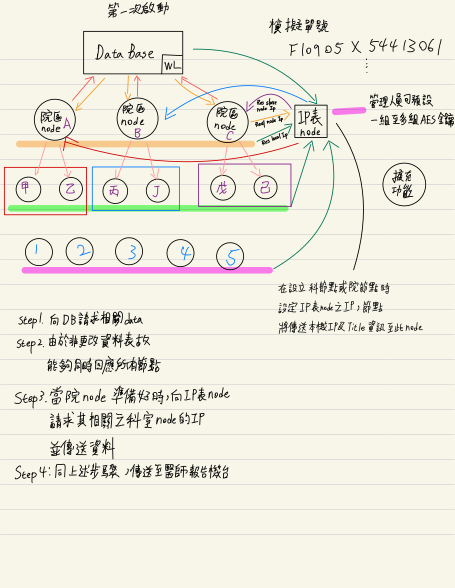 第一次啟動
模擬單號
F10905X54413061
Data Base
WL
院區
node A
院區
node
B
院區
node
C
Res leaf Ip
IP表
node
管理人員可預設
一組至多組AES金鑰
甲
乙
丙
丁
戊
己
擴充
功能
1
2
3
4
5
在設立科節點或院節點時
設定IP表node之IP,節點
將傳送本機IP及Title資訊至此node
Step1. 向DB請求相關data
Step2. 由於非更改資料表故
能夠同時回應所有節點
Step3. 當院node準備好時,向IP表node
請求其相關之科室node的IP
並傳送資料
Step4:同上述步驟,傳送至醫師報告機台